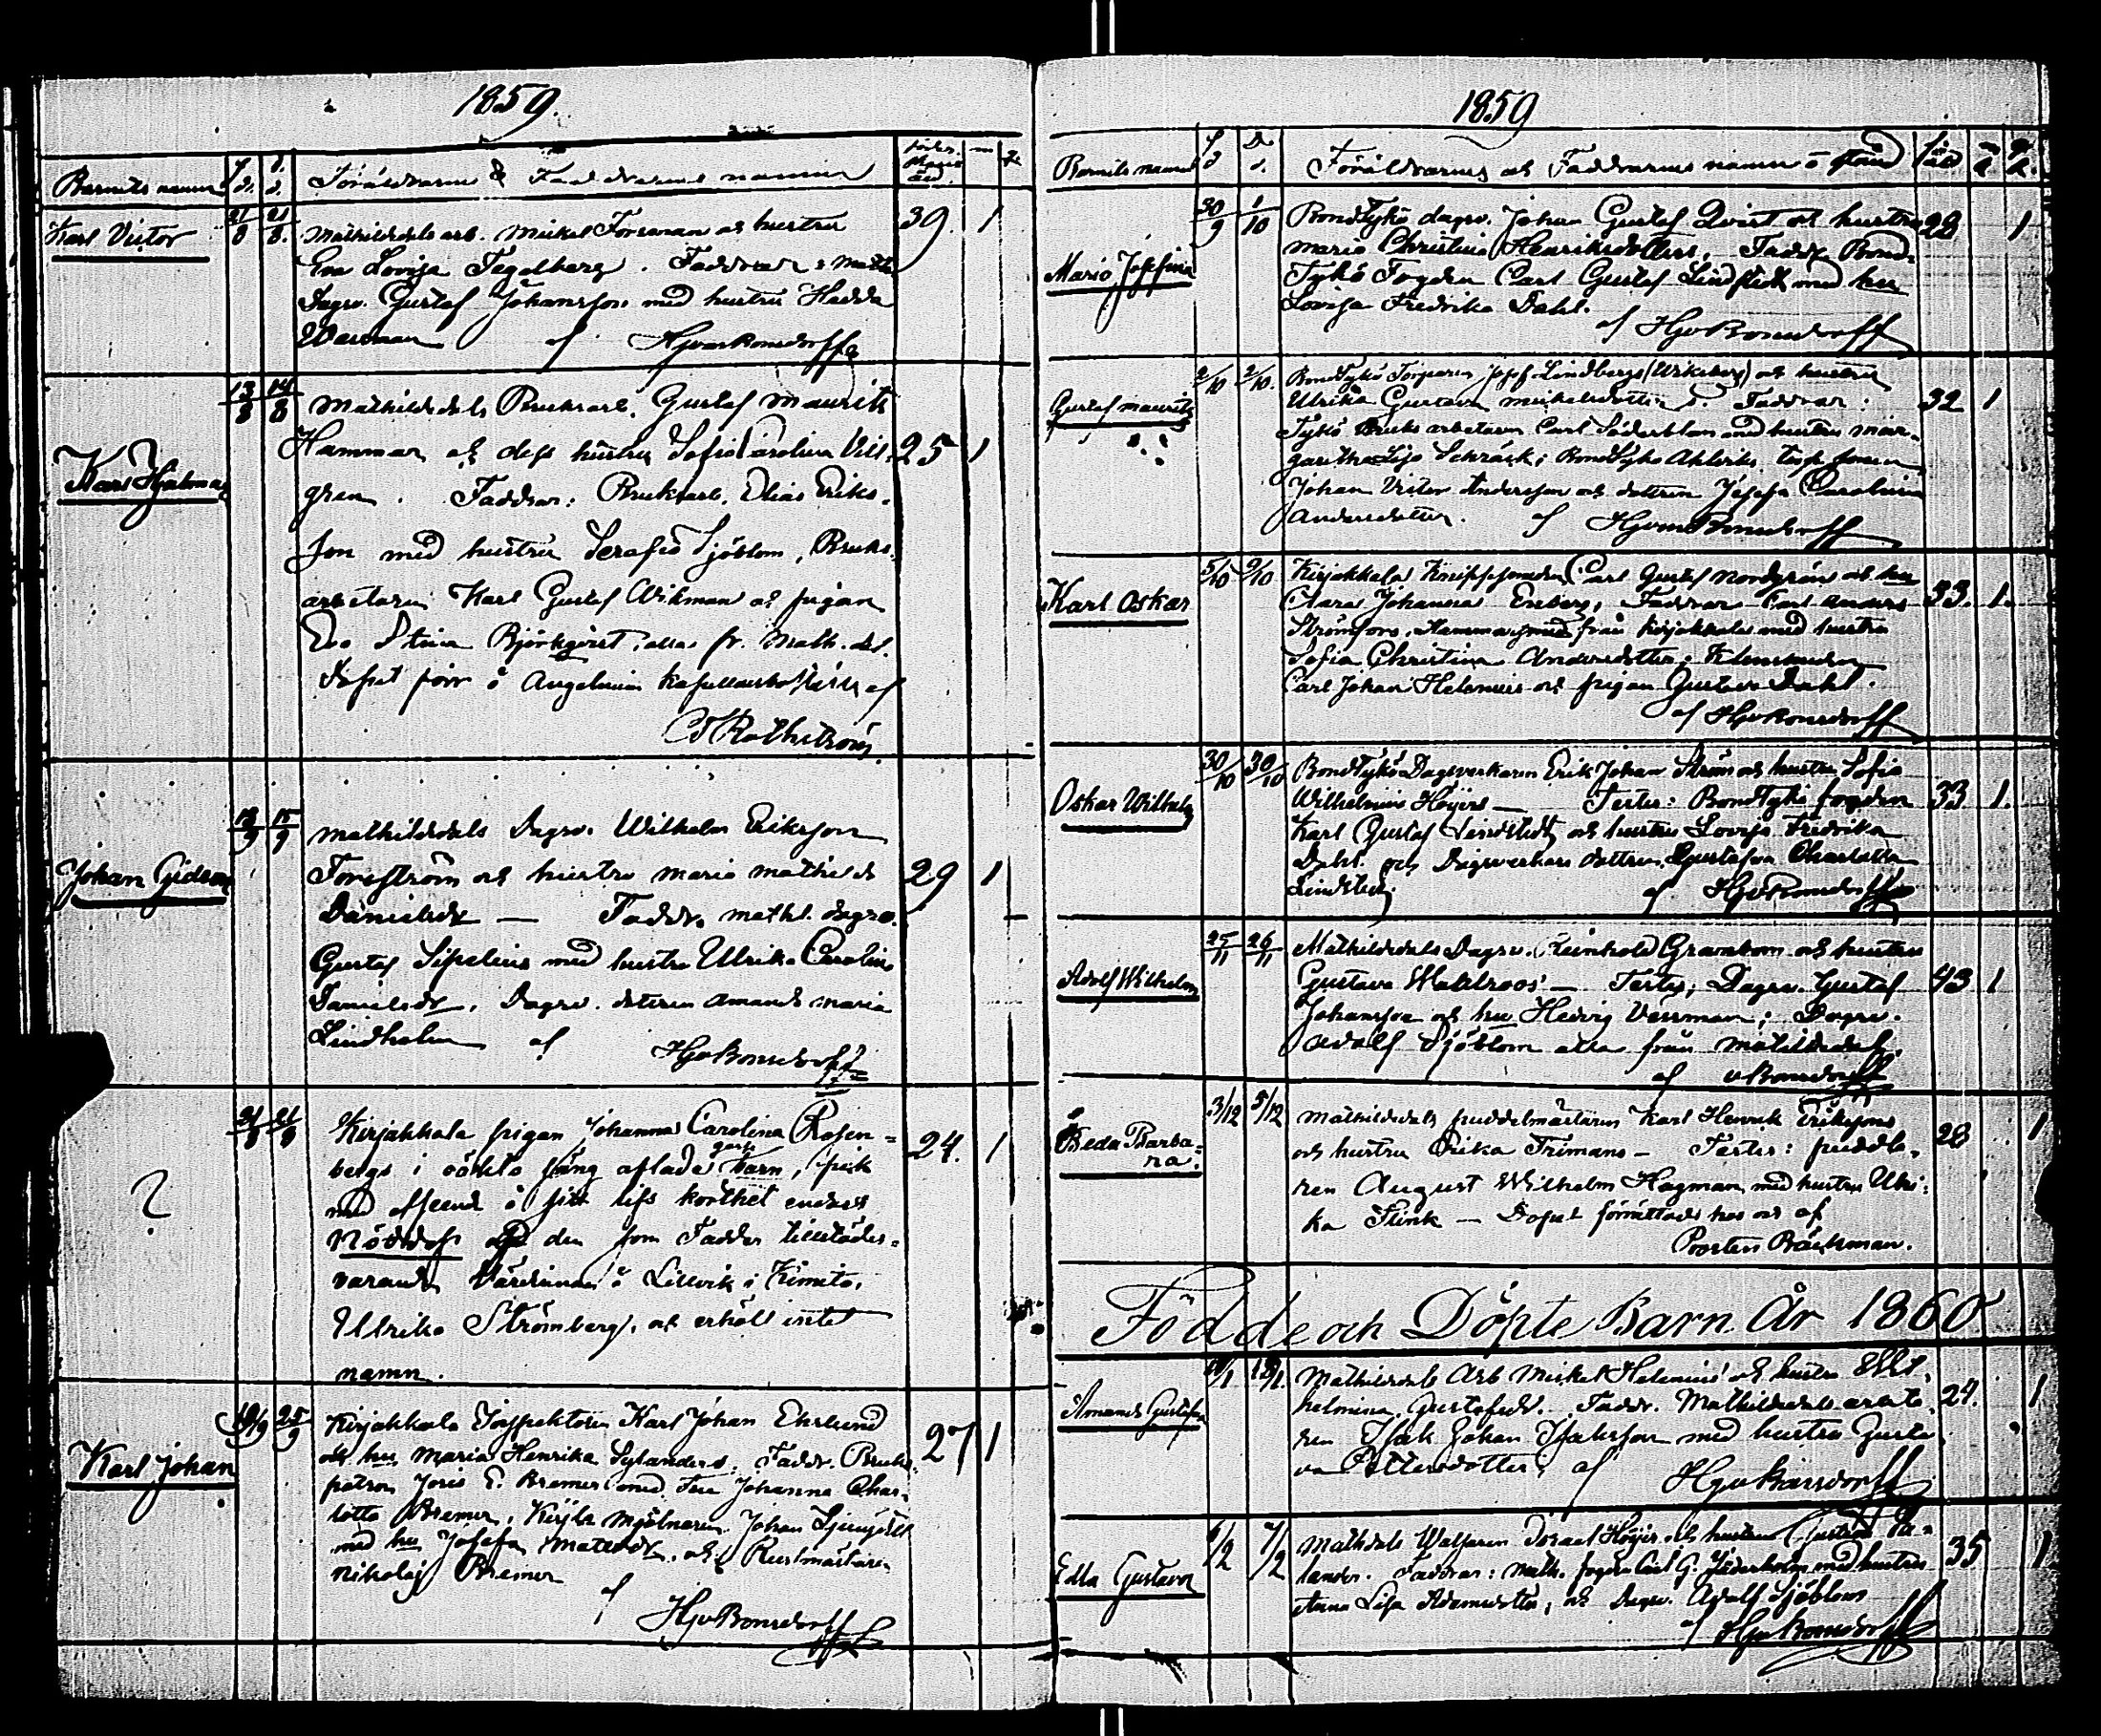 1859.
Barnets namn f. d. d. d. Föräldrarnes & Faddrarnes namn
Karl Victor 21/8 21/8. Mathildedals arb. Mickel Forsman och hustru 39. 1
Eva Lovisa Tegelberg. Faddrar: Math.
Dagsv. Gustaf Johansson med hustru Hedda
Werman af HJvonBonsdorff
Karl Hjalmar 13/8 14/8 Mathildedals Bruksarb. Gustaf Maurits
Hammar och dess hustru Sofia Carolina Vil- 25 1
gren. Faddrar: Bruksarb. Elias Eriks-
son med hustru Serafia Sjöblom, Bruks-
arbetaren Karl Gustaf Wikman och pigan
Eva Stina Björkqvist, alla fr. Math.dal.
Dopet förr. å Angelniemi af
Johan Gideon 12/9 15/9 Mathildedals Dagsv. Wilhelm Eriksson
Forsström och hustru Maria Mathilda 29 1
Danielsdr — Faddr. Mathl. dagsv.
Gustaf Sipelius med hustru Ulrika Carolina
Danielsdr, Dagsv. dottren Amanda Maria
Lindholm af HJvBonsdorff
? 21/9 21/9 Kirjakkala pigan Johanna Carolina Rosen- 24. 1
bergs i oäkta säng aflade gosse barn, fick
med afseende å sitt lifs korthet endast
Nöddop af den som Fadder tillstädes-
varande Värdinnan å Lillvik i Kimito,
Ulrika Strömberg, och erhöll intet
namn.
Karl Johan 19/9 25/9 Kirjakkala Inspektoren Karl Johan Ehrlund 27 1
och hu Maria Henrika Sylanders. Faddr. Bruks-
patron Joris E. Bremer med Fru Johanna Char-
lotta Bremer, Kirjla Mjölnaren Johan Ljungqvist
med hu Josefa Matsdr. och Rustmästaren
Nikolaj Bremer
af HJvBonsdorff
1859
Barnets namn f d D d. Föräldrarnes och Faddrarnes namn o stånd
Maria Josefina 30/9 1/10 BondTykö dagsv. Johan Gustaf Qvist och hustru 28 1
Maria Christina Henriksdotters. Faddr. Bond-
Tykö Fogden Carl Gustaf Lindstedt med hu
Lovisa Fredrika Dahl.
af HJvBonsdorff
Gustaf Maurits 2/10 2/10. BondTykö Torparen Josef Lindbergs (Wikeberg) och hustru
Ulrika Gustava Mickelsdotter s. Faddrar: 32 1
Tykö Bruks arbetaren Carl Söderblom med hustru Mar-
garetha Lisa Schräck; BondTykö Ahlviks torp. sonen
Johan Victor Andersson och dottren Josefa Carolina
Andersdotter. af HJvonBonsdorff
Karl Oskar 5/10 9/10 Kirjakkala Knippsmeden Carl Gustaf Nordgréns och hu
Clara Johanna Enberg, Faddrar Carl Anders 33. 1.
Strömfors, Hammarsmed från Kirjakkala med hustru
Sofia Christina Andersdotter; Klensmeden
Carl Johan Helenius och pigan Gustava Dahl.
af HJvBonsdorff
Oskar Wilhelm 30/10 30/10 BondTykö Dagsverkaren Erik Johan Ström och hustru Sofia
Wilhelmina Höijers — Testes: BondTykö fogden 33 1.
Karl Gustaf Lindstedt och hustru Lovisa Fredrika
Dahl. och Dagsverkare dottren Gustafva Charlotta
Lindstedt. af HJvBonsdorff
Adolf Wilhelm 25/11 26/11 Mathildedals Dagsv. Reinhold Granbom och hustru
Gustava Wahlroos' — Testes; Dagsv. Gustaf 43 1
Johansson och hu Hedvig Verman; Dagsv.
Adolf Sjöblom alla från Matildedal.
af vBonsdorff
Beda Barba-
ra. 3/12 5/12 Mathildedals puddelmästaren Karl Henrik Erikssons 28 1
och hustru Erika Frimans — Testes: puddla-
ren August Wilhelm Hagman med hustru Ulri-
ka Flink — Dopet förrättades hos oss af
Prosten Bäckman.
Födde och Döpte Barn År 1860
Amanda Gustafva Mathildedals Arb Mickel Helenius' och hustru Wil-
helmina Gustafsdr. Faddr. Mathildedals arbeta- 24. 1
ren Isak Johan Isaksson med hustru Gusta-
va Pettersdotter; af HJvBonsdorff
Edla Gustava 6/2 7/2 Mathdals Walsaren Israel Höijer och hustru Gustava 35 1
lander. Faddrar: Math. fogden Carl G. Söderholm med hustru
Anna Lisa Adamsdotter, och Dagsv. Adolf Sjöblom
af HJvBonsdorff